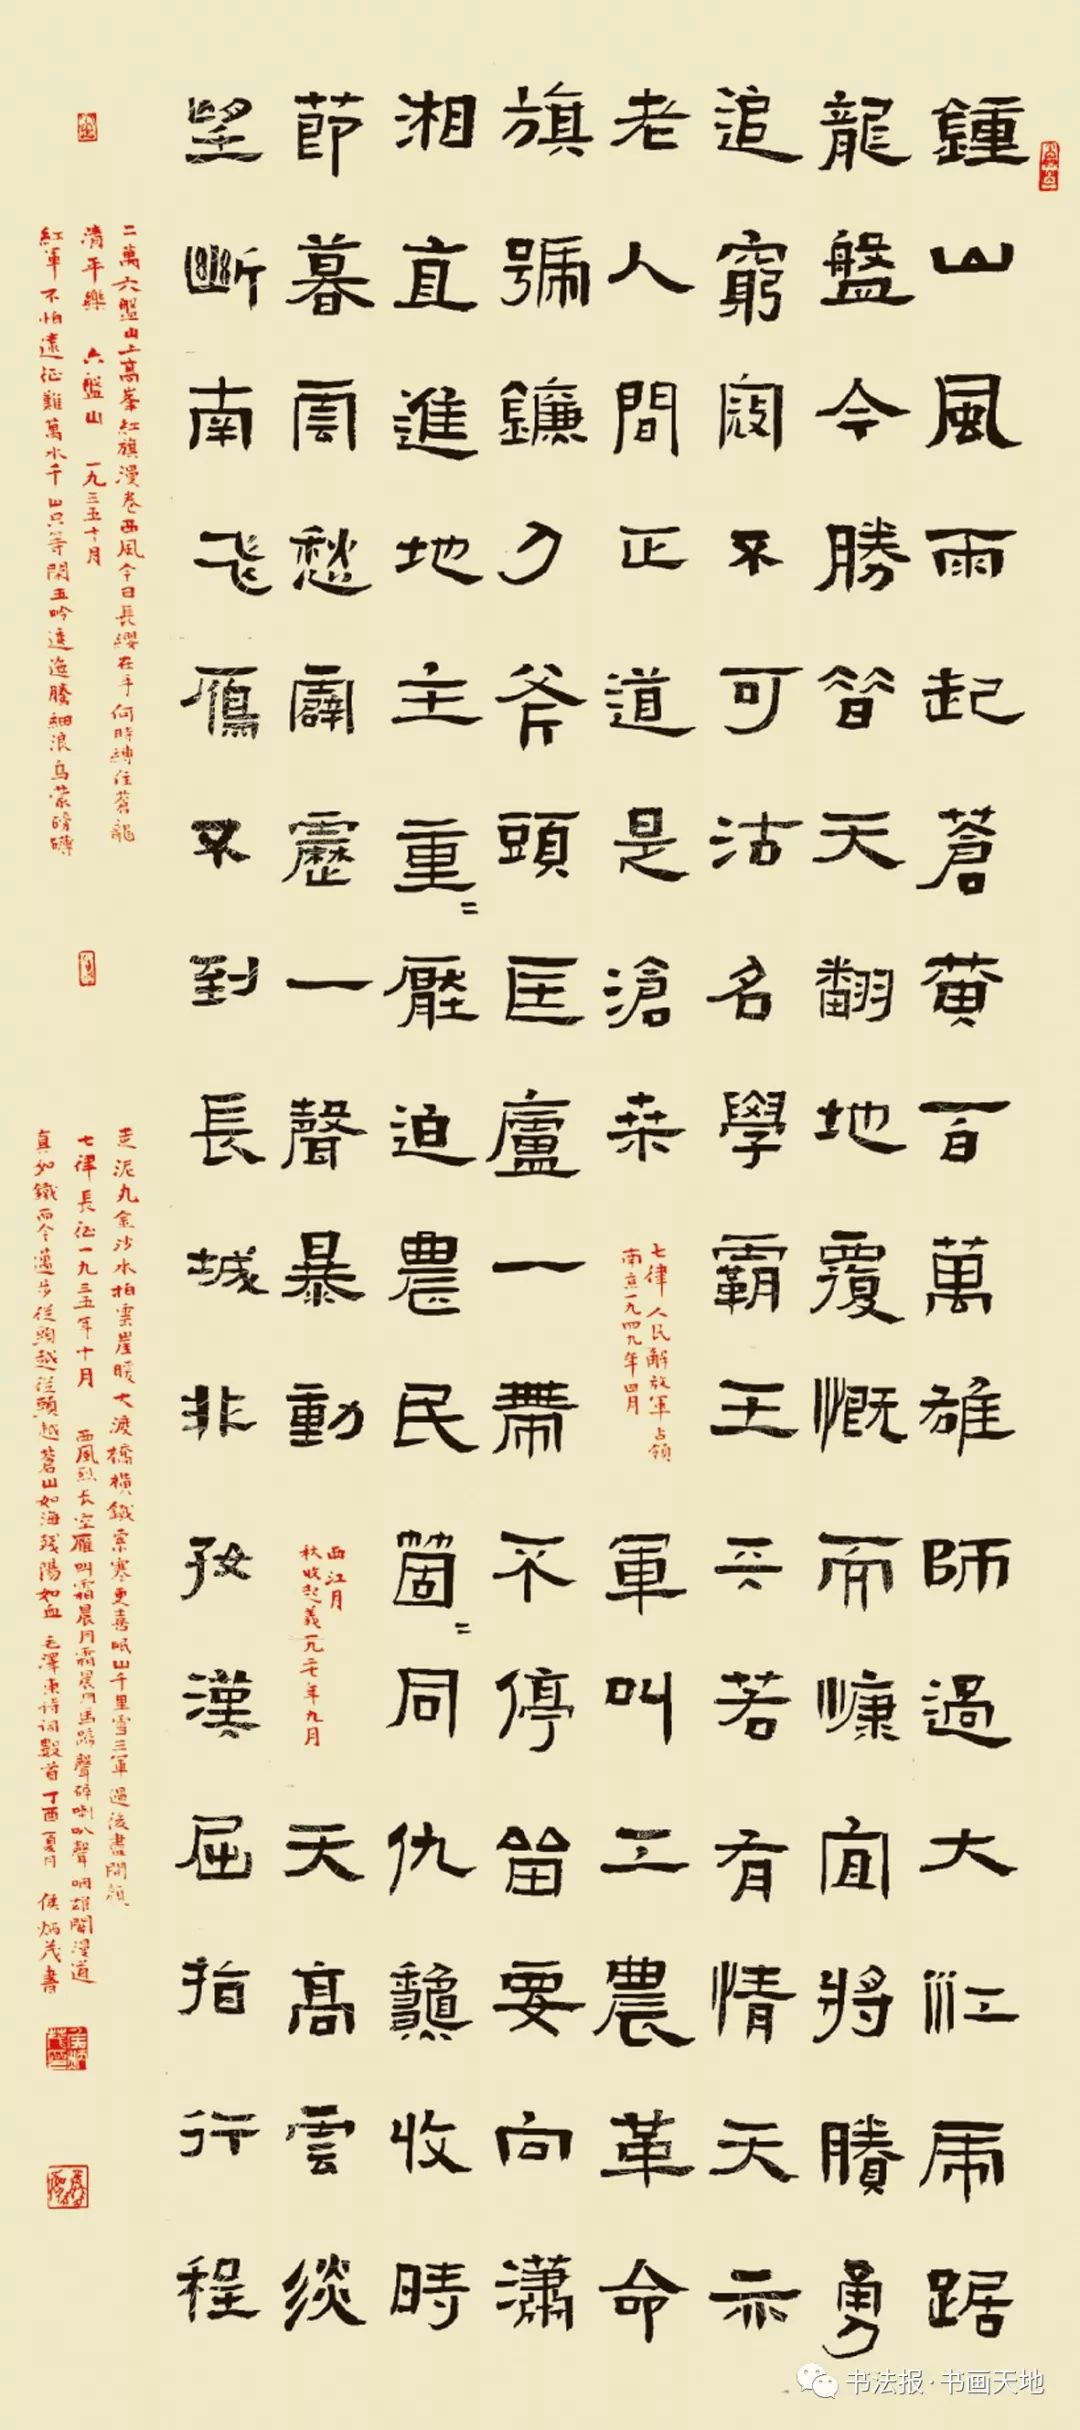 鍾山風雨起蒼黄百萬雄師過大江虎踞
龍盤今勝昔天翻地覆慨而慷宜將賸勇
追窮寇不可沽名學霸王天若有情天亦
老人間正道是滄桑
七律 人民解放軍占領
南京一九四九年四月
軍叫工農革命
旗號鐮刀斧頭匡廬一帶不停留要向瀟
湘直進地主重〻壓迫農民箇〻同仇龝收時
節暮雲愁霹靂一聲暴動
西江月
秋收起義一九二七年九月
天高雲淡
望斷南飛雁不到長城非好漢屈指行程
二萬六盤山上高峯紅旗漫卷西風今日長纓在手何時縛住蒼龍
清平樂 六盤山 一九三五十月
紅軍不怕遠征難萬水千山只等閑五吟逶迤騰細浪烏蒙磅礴
走泥丸金沙水拍雲崖暖大渡橋橫鐵索寒更喜岷山千里雪三軍過後盡開顔
七律長征一九三五年十月 西風烈长空雁叫霜晨月霜晨月馬蹄聲碎喇叭聲咽雄關漫道
真如鐵而今邁步從頭越從頭越蒼山如海殘陽如血 毛澤東詩詞數首丁酉夏月 侯炳茂書
书法报·书画天地